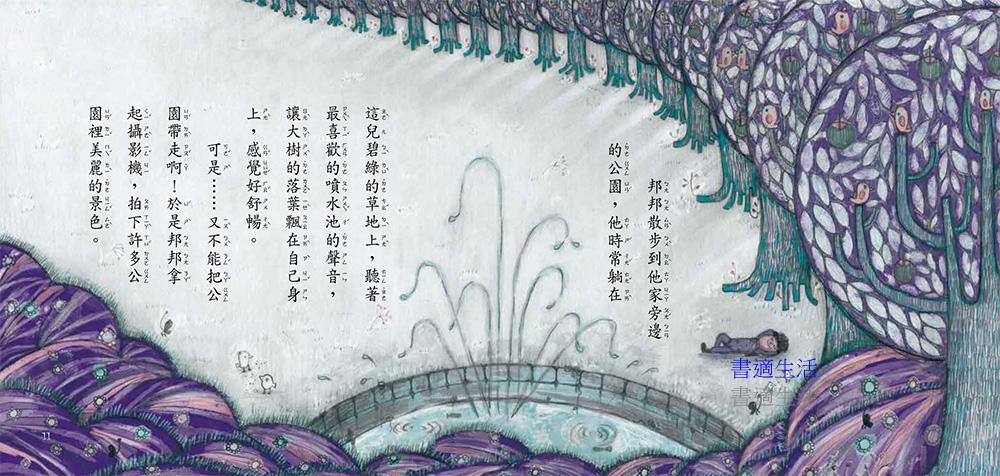 邦邦散步到他家旁邊
的公園，他時常躺在
這兒碧綠的草地上，聽著
最喜歡的噴水池的聲音，
讓大樹的落葉飄在自己身
上，感覺好舒暢。
可是……又不能把公
園帶走啊！於是邦邦拿
起攝影機，拍下許多公
園裡美麗的景色。
書適生活
書適生
11